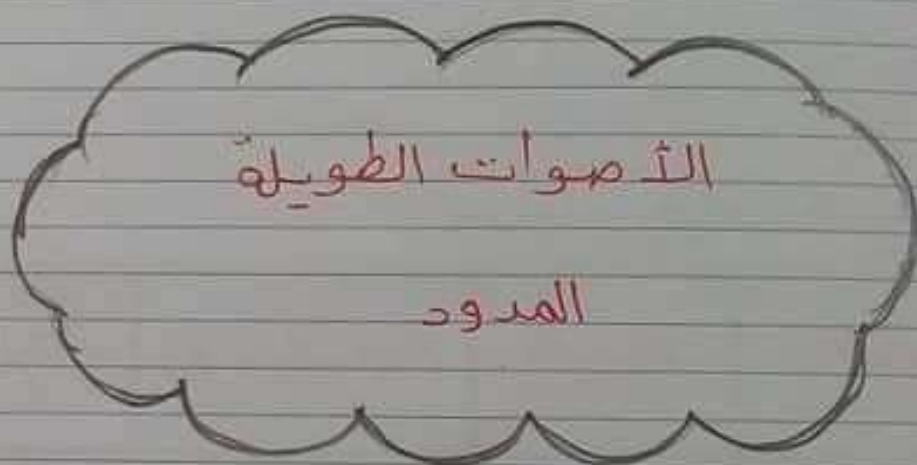 الأصوات الطويلة
المدود